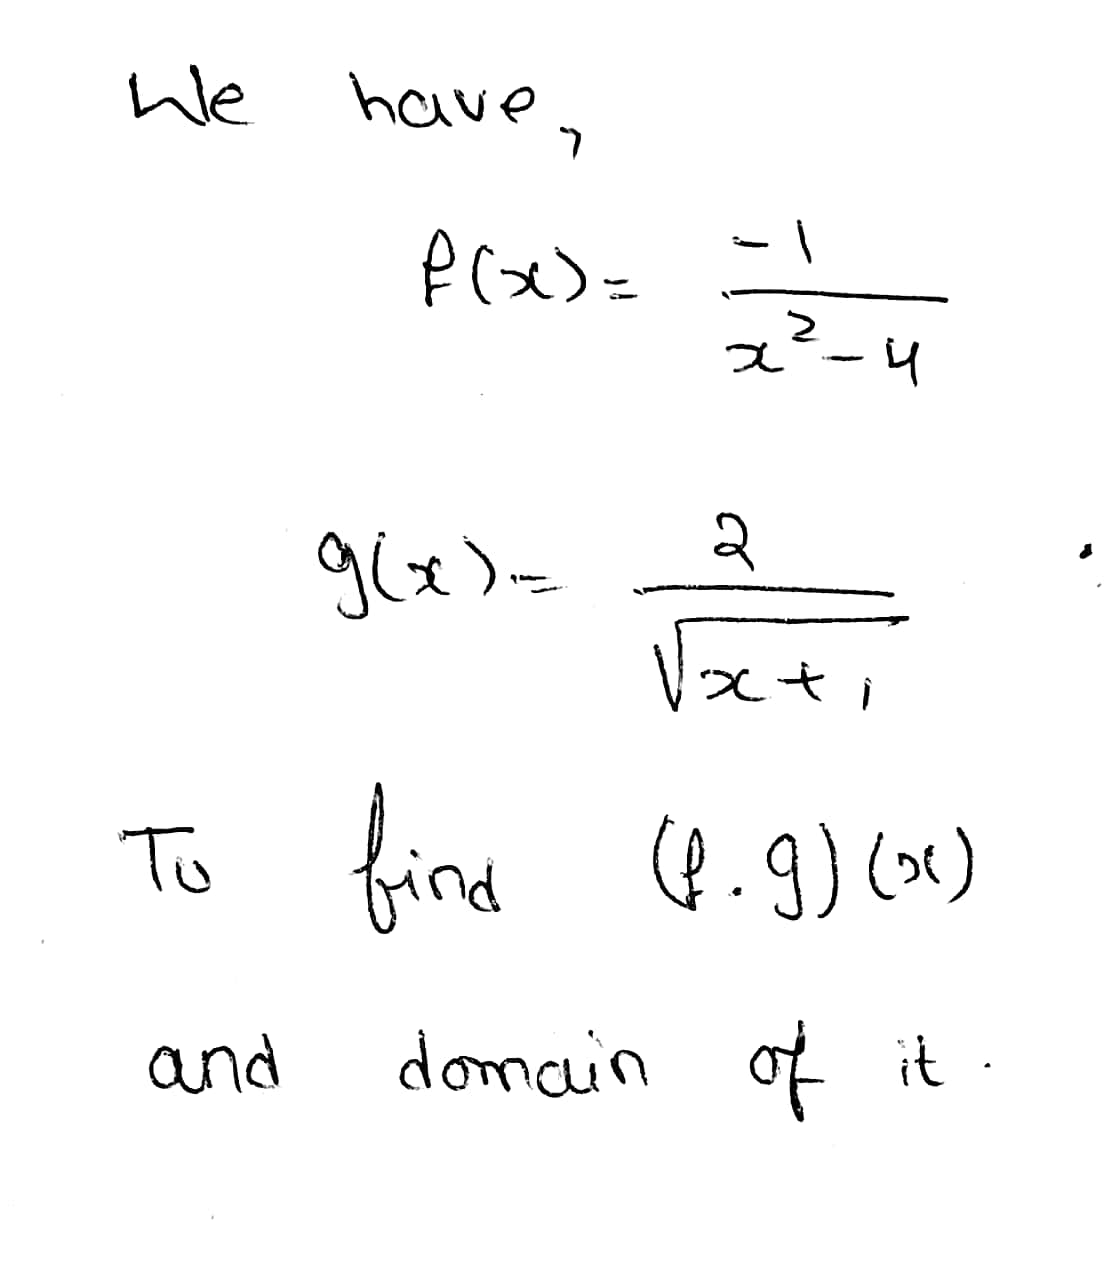 We have,
f(x) = -1 / x² - 4
g(x) = 2 / √x + 1
To find (f.g)(x)
and domain of it.